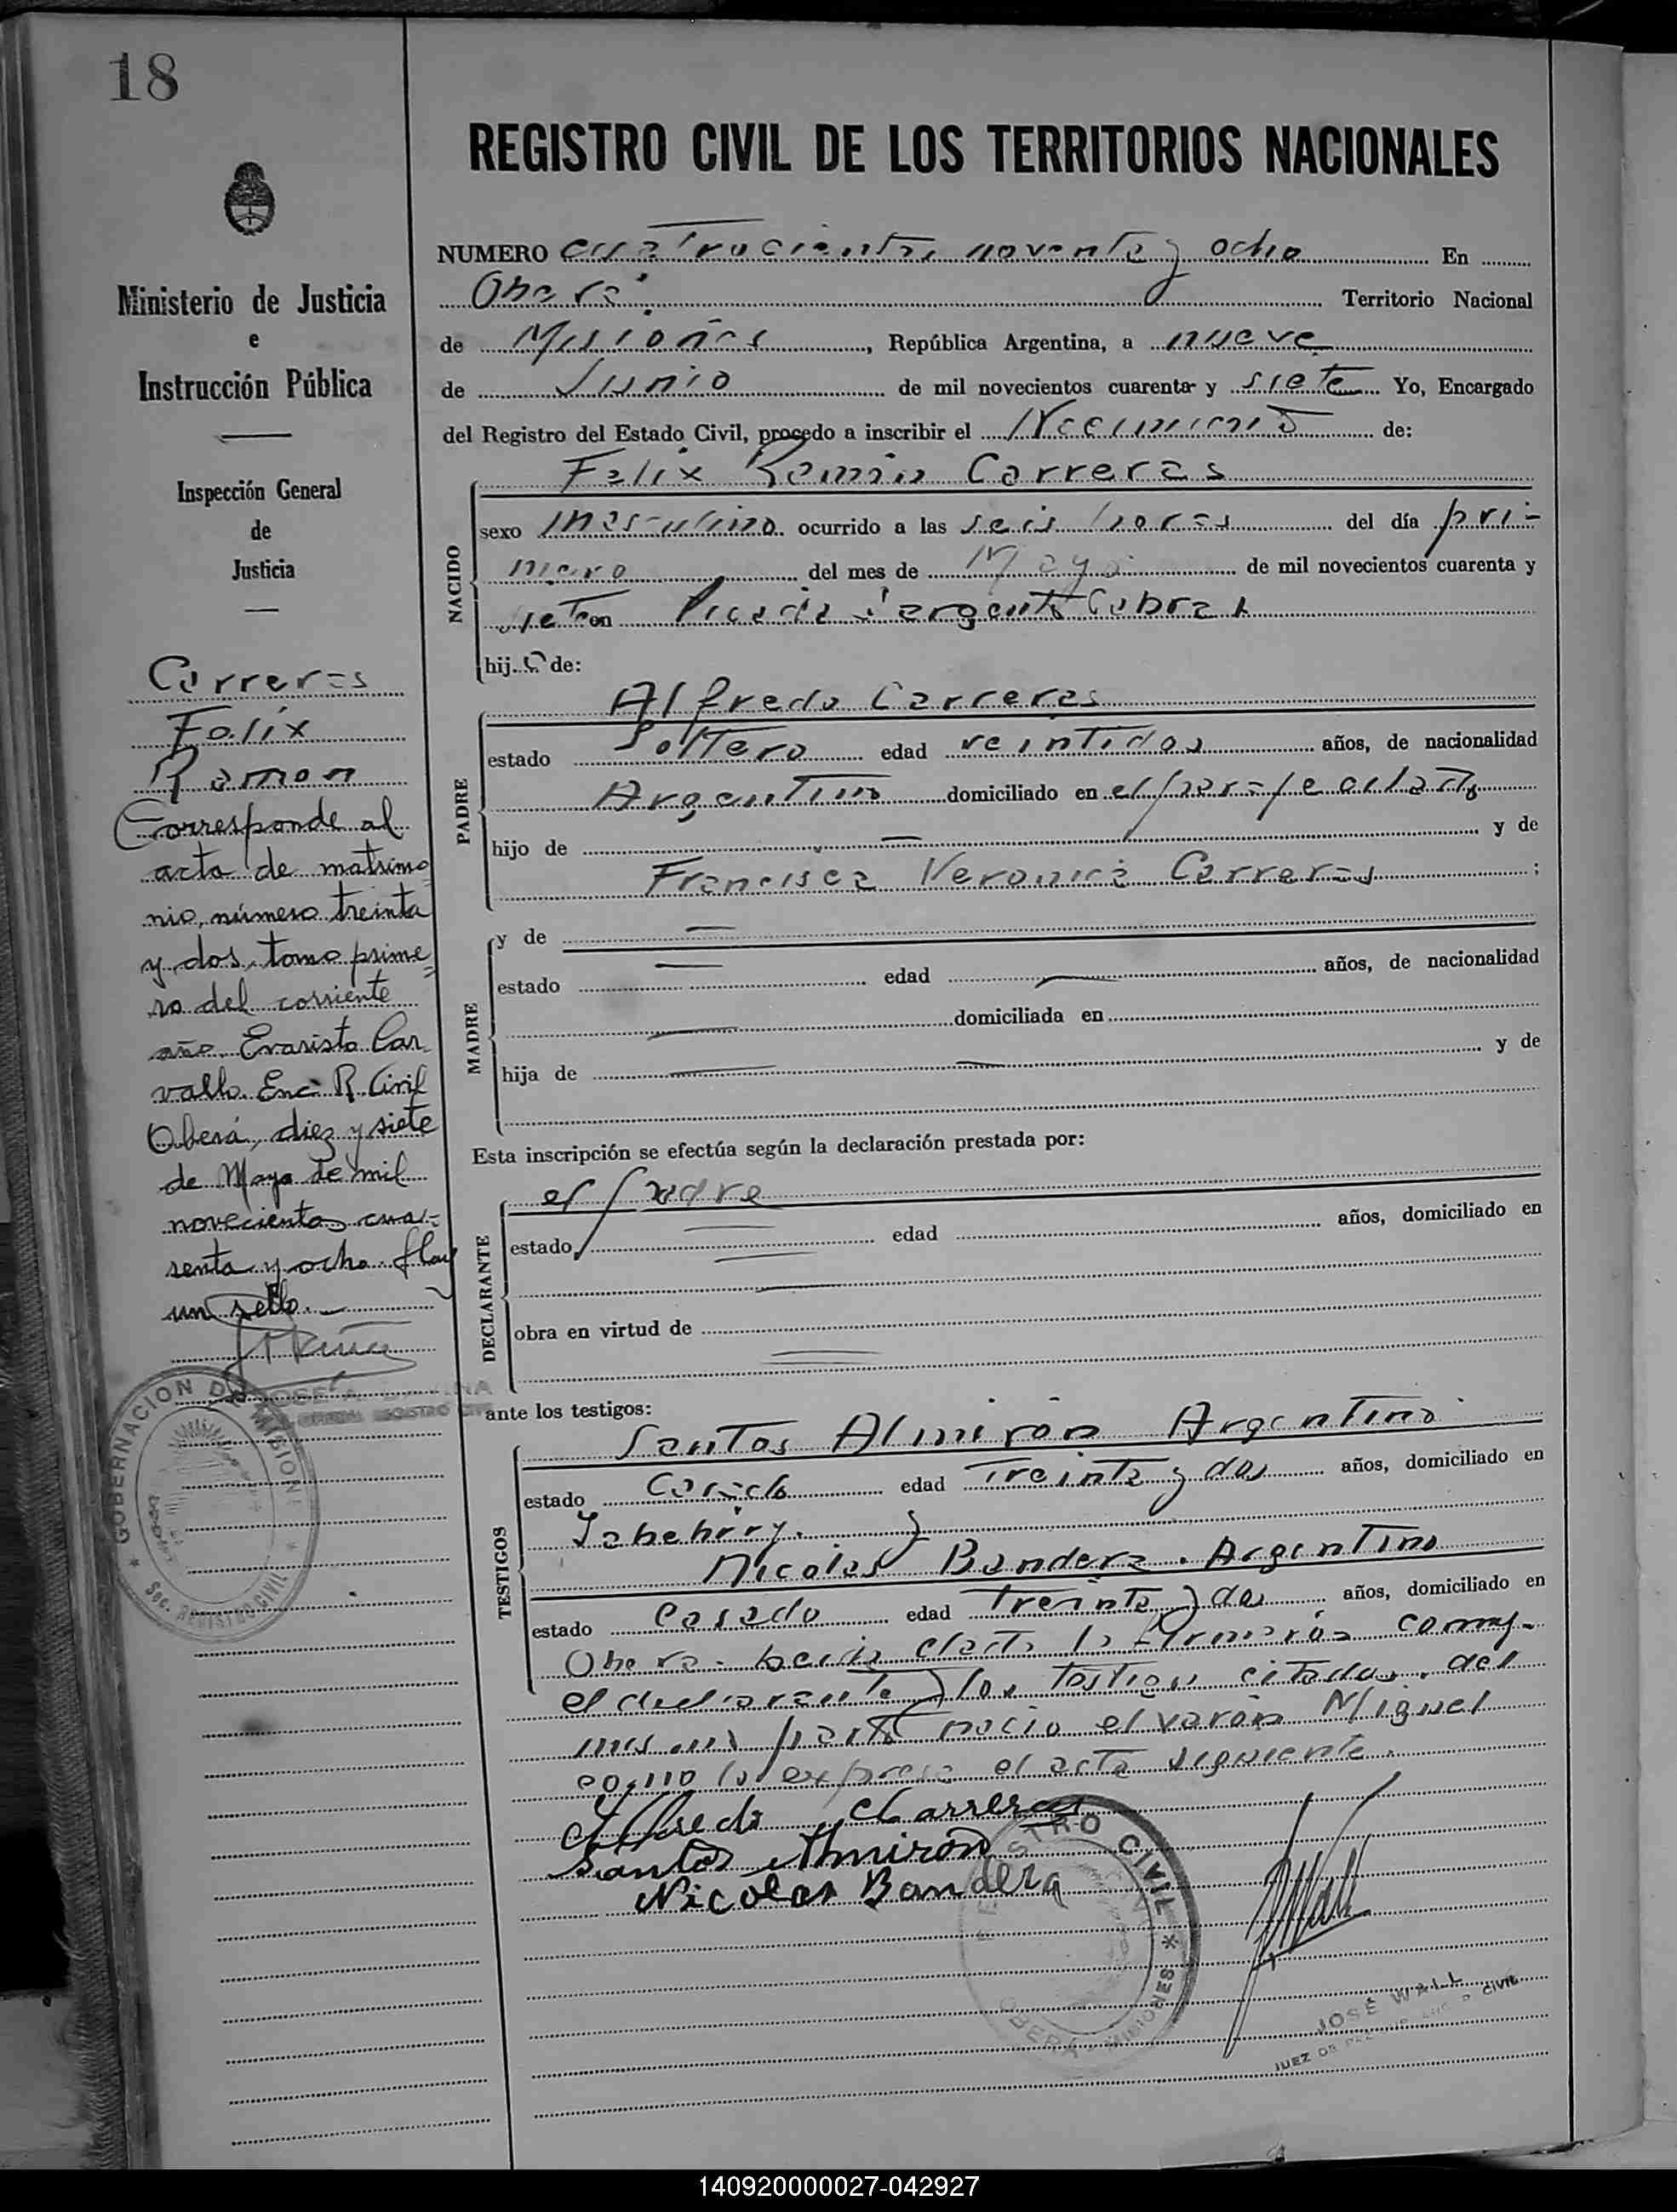 18
REGISTRO CIVIL DE LOS TERRITORIOS NACIONALES
Ministerio de Justicia
e
Instrucción Pública
Inspección General
de
Justicia
Carreras
Felix
Ramon
Corresponde al
acta de matrimo
nio, número treinta
y dos, tomo prime
ro del corriente
año. Evaristo Car
vallo. Enc. R. Civil
Oberá, diez y siete
de Mayo de mil
novecientos cua-
renta y ocho. Hay
un sello.
GOBERNACION DE MISIONES
SEC. REGISTRO CIVIL
NUMERO cuatrocientos noventa y ocho En
Oberá Territorio Nacional
de Misiones, República Argentina, a nueve
de Junio de mil novecientos cuarenta y siete Yo, Encargado
del Registro del Estado Civil, procedo a inscribir el Nacimiento de:
Felix Ramón Carreras
NACIDO
sexo masculino ocurrido a las seis horas del día pri-
mero del mes de Mayo de mil novecientos cuarenta y
siete en Picada Sargento Cabral
hijo de:
Alfredo Carreras
PADRE
estado Soltero edad veintidos años, de nacionalidad
Argentino domiciliado en el paraje citado
hijo de — y de
Francisca Veronica Carreras ;
MADRE
y de —
estado — edad — años, de nacionalidad
— domiciliada en
hija de — y de
Esta inscripción se efectúa según la declaración prestada por:
el padre
DECLARANTE
estado edad años, domiciliado en
obra en virtud de
ante los testigos:
TESTIGOS
Santos Almirón Argentino
estado Casado edad treinta y dos años, domiciliado en
Yabebiry. y
Nicolas Bandera. Argentino
estado Casado edad treinta y dos años, domiciliado en
Oberá. acta la firmarón
el declarante y los testigos citados. del
mismo parto nacio el varón Miguel
como lo expresa el acta siguiente.
Alfredo Carreras
Santos Almiron
Nicolas Bandera
REGISTRO CIVIL
OBERÁ MISIONES
JOSÉ WALL
JUEZ DE PAZ CIVIL
140920000027-042927